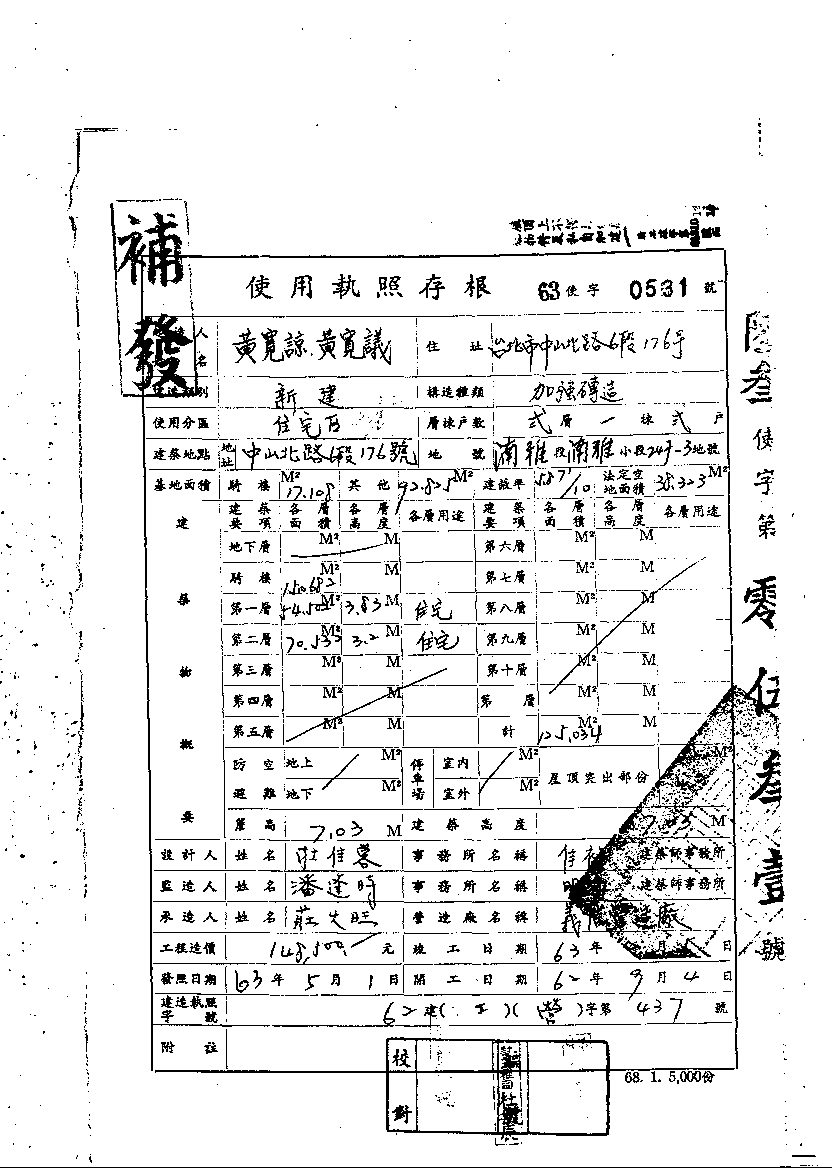 補發
使用執照存根 63使字 0531 號
人名 黃寬諒、黃寬議 住址 台北市中山北路6段176號
別 新建 構造種類 加強磚造
使用分區 住宅區 層棟戶數 弍層一棟弍戶
建築地點 地址 中山北路6段176號 地號 湳雅段湳雅小段24-3地號
基地面積 騎樓 17.108 M² 其他 92.825 M² 建蔽率 5.87/10 法定空地面積 38.323 M²
建築物概要
建築要項 各層面積 各層高度 各層用途 建築要項 各層面積 各層高度 各層用途
地下層 M² M 第六層 M² M
騎樓 M² M 第七層 M² M
第一層 M² 3.83 M 住宅 第八層 M² M
第二層 70.533 M² 3.2 M 住宅 第九層 M² M
第三層 M² M 第十層 M² M
第四層 M² M 第 層 M² M
第五層 M² M 計 125.034 M² M
防空避難 地上 M² 停車場 室內 M² 屋頂突出部份 M²
地下 M² 室外 M²
簷高 7.03 M 建築高度 7.03 M
設計人 姓名 杜佳蓉 事務所名稱 建築師事務所
監造人 姓名 潘逢時 事務所名稱 建築師事務所
承造人 姓名 營造廠名稱 義 營造廠
工程造價 148,500 元 竣工日期 63年 月 日
發照日期 63年5月1日 開工日期 62年9月4日
建造執照字號 62建( 工 )( 營 )字第 437 號
附註
校對
68. 1. 5,000份
陸叁使字第零伍叁壹號